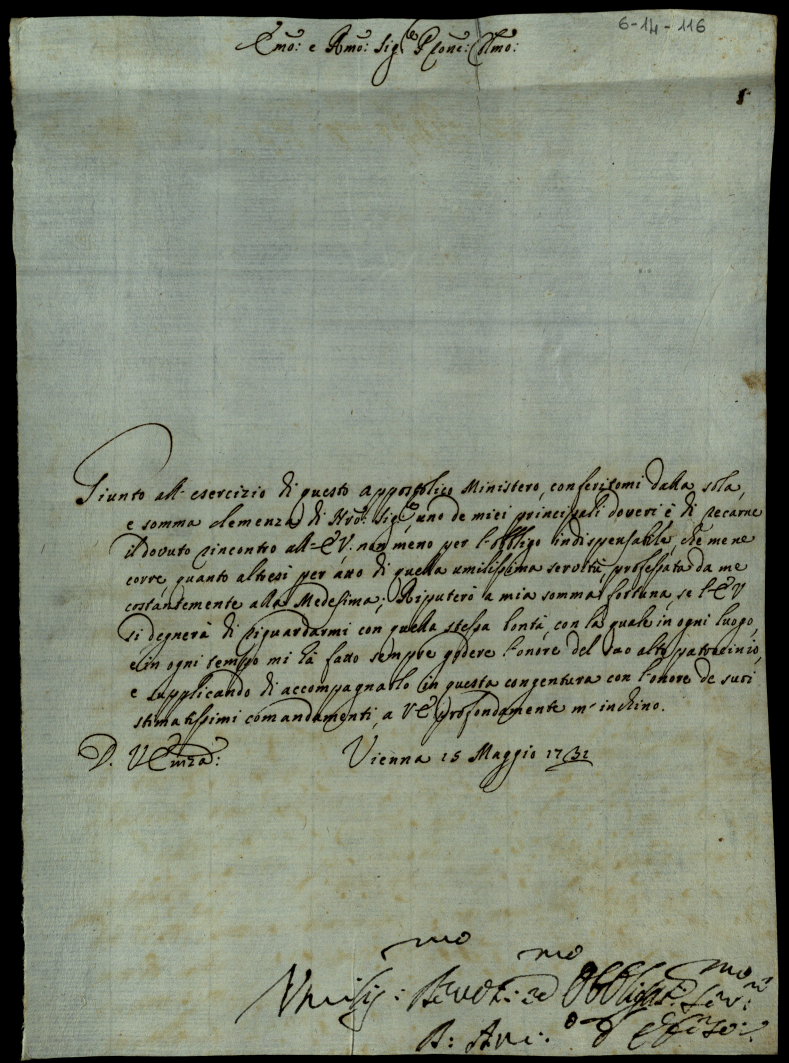 6-14-116
Emo: e Rmo: Sig.re Prone: Colmo:
Giunto all'esercizio di questo appostolico Ministero, conferitomi dalla sola,
e somma clemenza di Nro: Sig.re uno de miei principali doveri è di recarne
il dovuto rincontro all'E.V. non meno per l'obbligo indispensabile, che mene
corre, quanto altresi per atto di quella umilissima servitù, professata da me
costantemente alla Medesima; Riputerò a mia somma fortuna, se l'E.V
si degnerà di riguardarmi con quella stessa bontà, con la quale in ogni luogo,
e in ogni tempo mi hà fatto sempre godere l'onore del suo alto patrocinio,
e supplicando di accompagnarlo in questa congentura con l'onore de suoi
stimatissimi comandamenti, a V.E. profondamente m'inchino.
D. V. Emza: Vienna 15 Maggio 1731
Umilis:mo Devot:mo ed Obbligat:mo Ser: